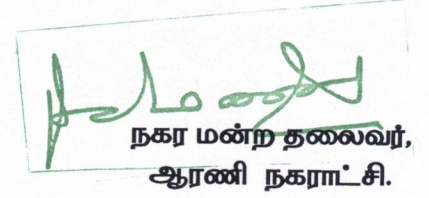 நகர மன்ற தலைவர்,
ஆரணி நகராட்சி.